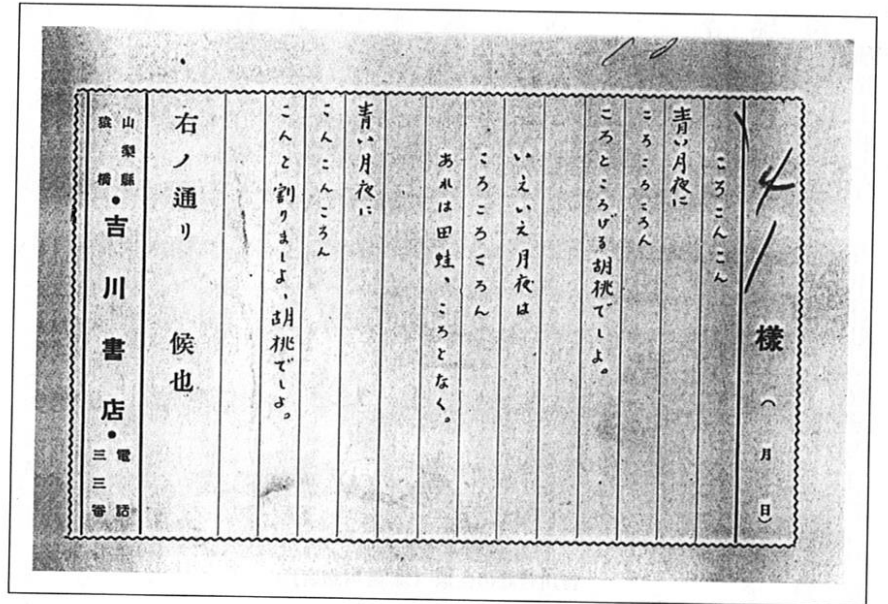 様（　月　日）
ころこんこん
青い月夜に
ころころころん
ころところげる胡桃でしよ。
いえいえ月夜は
ころころころん
あれは田蛙、ころとなく。
青い月夜に
こんこんころん
こんと割りましよ、胡桃でしよ。
右ノ通リ　候也
山梨縣
猿橋
・吉川書店・
電話
三三番